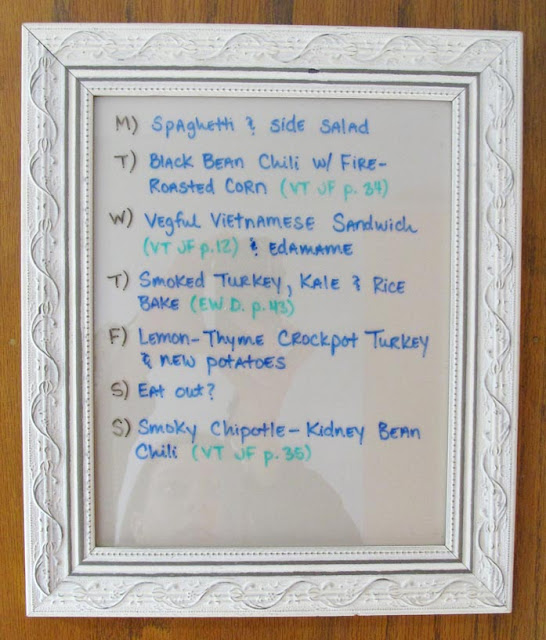 M) Spaghetti & side salad
T) Black Bean Chili w/ Fire-
Roasted Corn (VT JF p. 34)
W) Vegful Vietnamese Sandwich
(VT JF p.12) & edamame
T) Smoked Turkey, Kale & Rice
Bake (EW D. p.43)
F) Lemon-Thyme Crockpot Turkey
& new potatoes
S) Eat out?
S) Smoky Chipotle-Kidney Bean
Chili (VT JF p. 35)